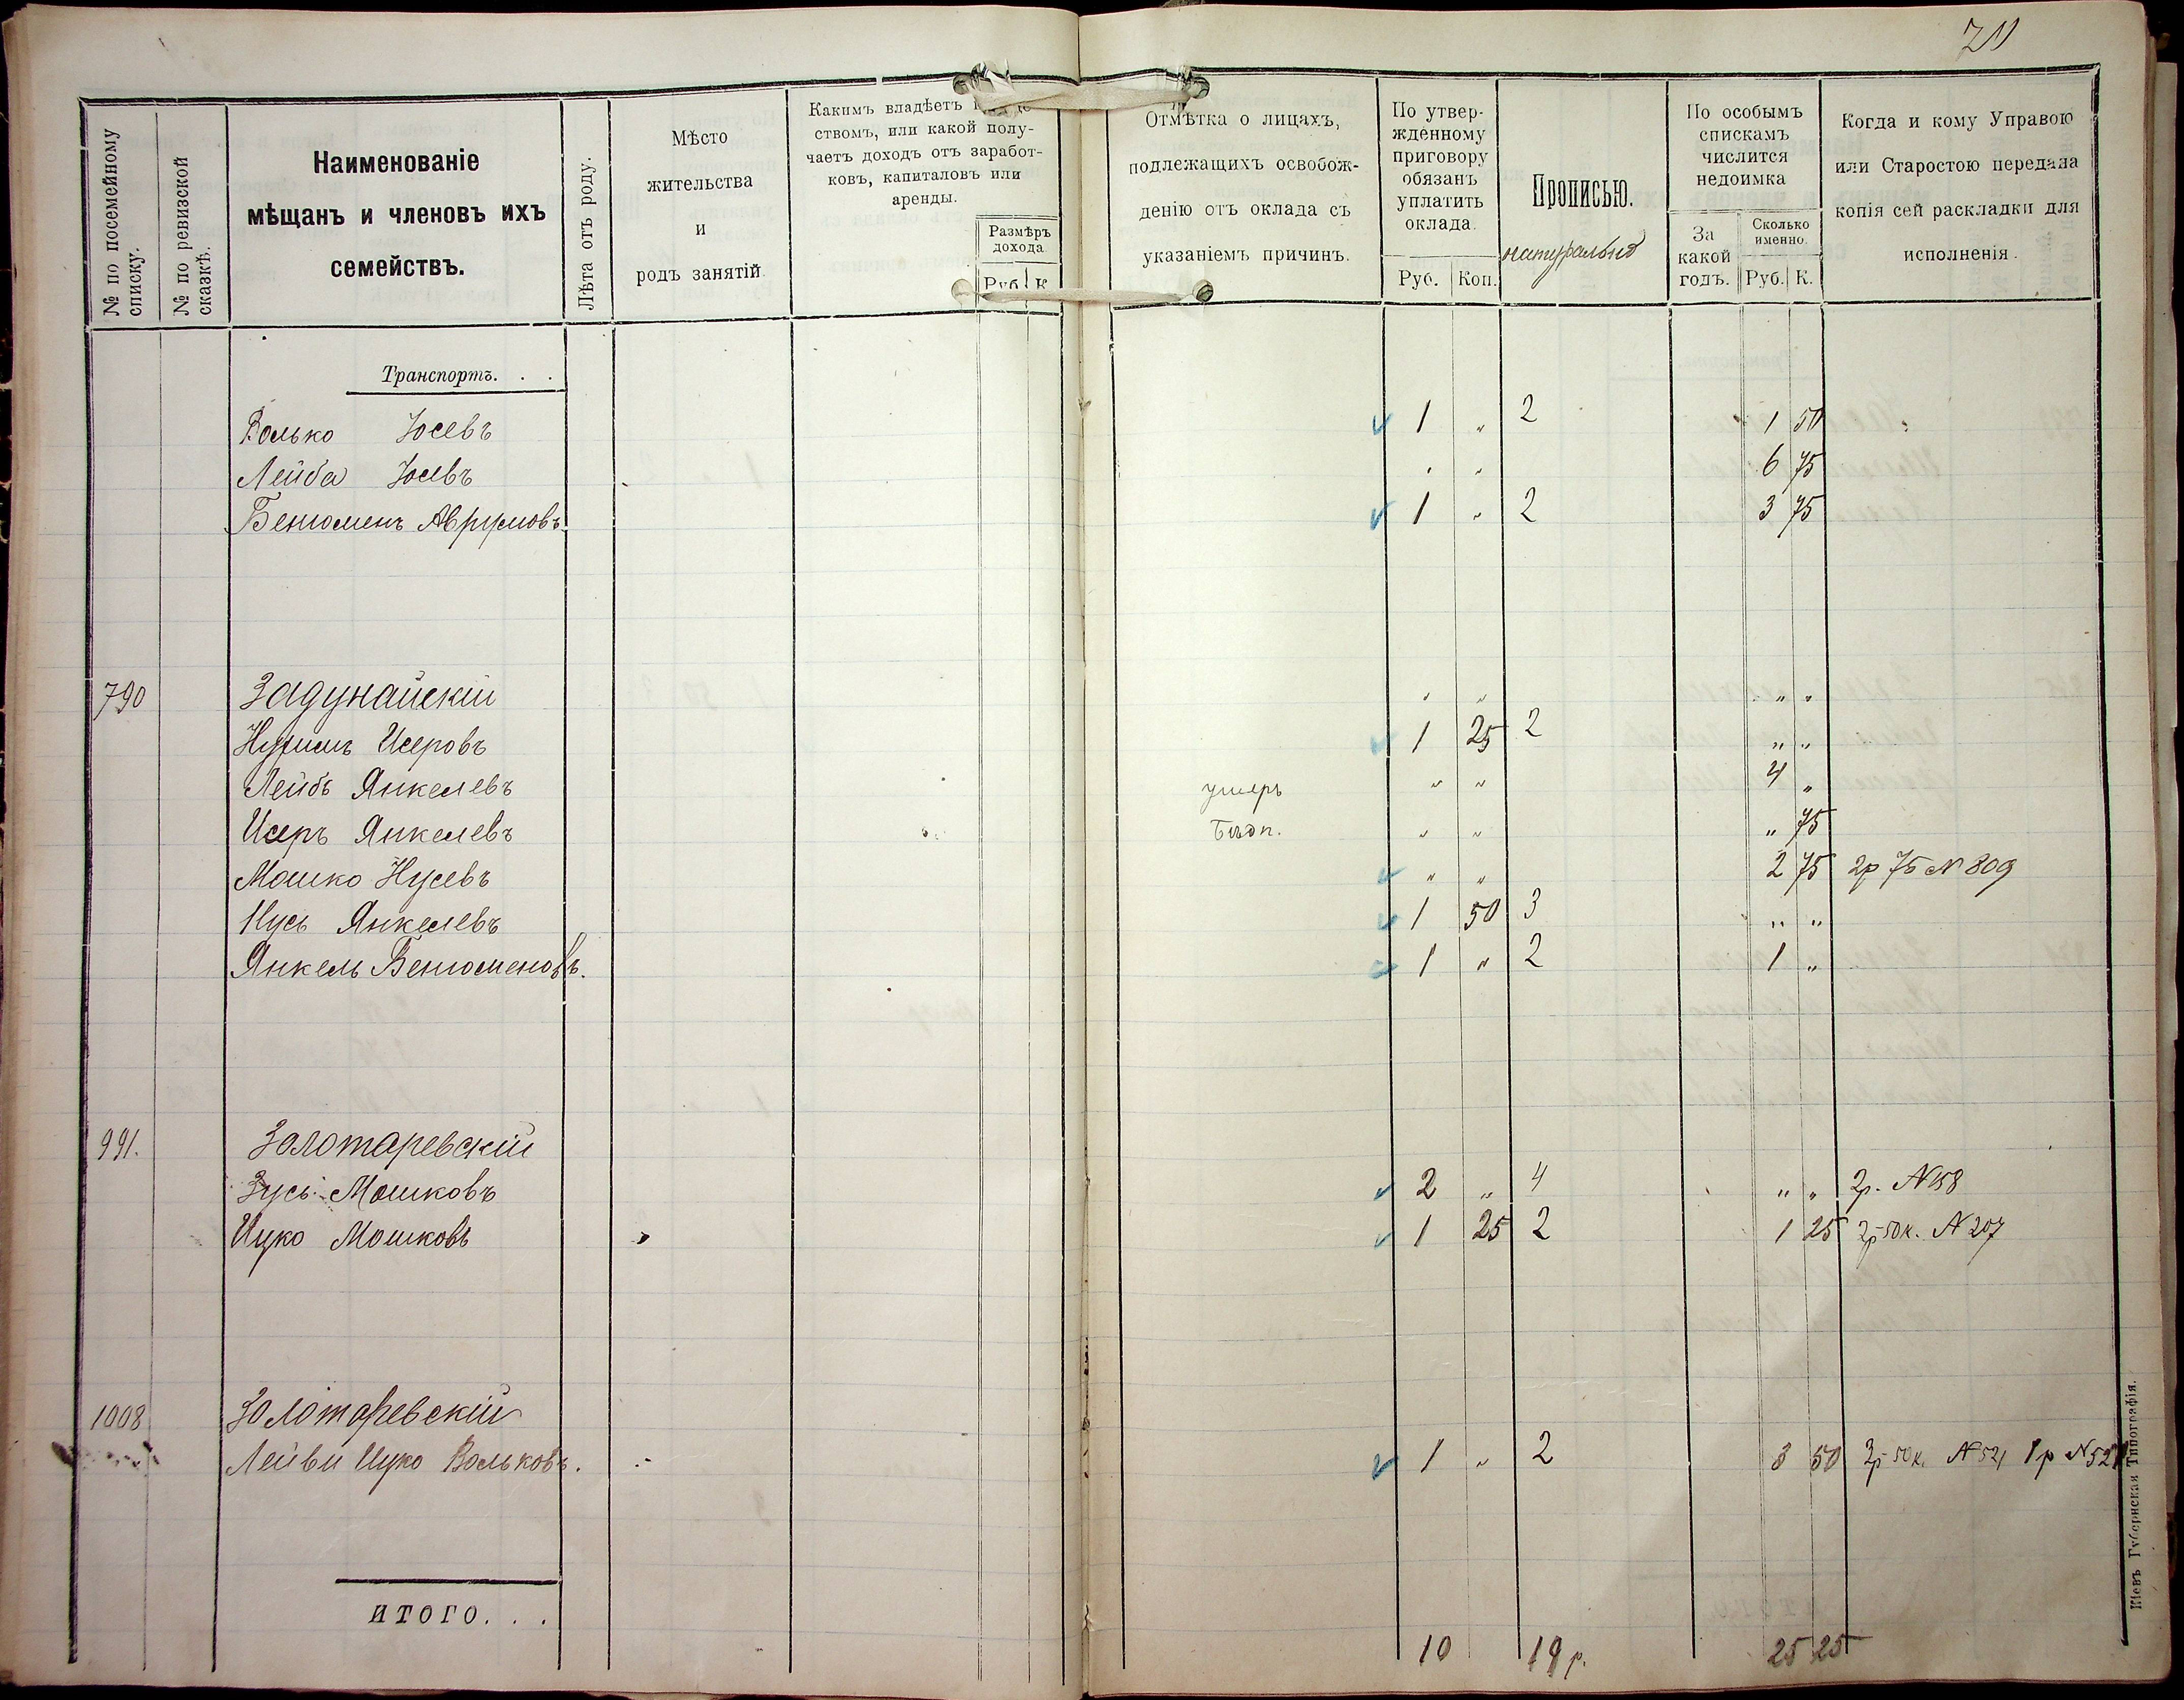 № по посемейному списку.
№ по ревизской сказкѣ.
Наименованіе
мѣщанъ и членовъ ихъ
семействъ.
Лѣта отъ роду.
Мѣсто
жительства
и
родъ занятій.
Какимъ владѣетъ
ствомъ, или какой полу-
чаетъ доходъ отъ заработ-
ковъ, капиталовъ или
аренды.
Размѣръ
дохода.
Руб. К.
Транспортъ. . .
Волько Іосевъ
Лейба Іосевъ
Бенюменъ Аврумовъ.
790 Задунайскій
Нухимъ Исеровъ
Лейбъ Янкелевъ
Исеръ Янкелевъ
Мошко Нусевъ
Нусь Янкелевъ
Янкель Бенюменовъ.
991. Золотаревскій
Зусь Мошковъ
Ицко Мошковъ
1008 Золотаревскій
Лейви Ицко Вольковъ.
ИТОГО. . .
Отмѣтка о лицахъ,
подлежащихъ освобож-
денію отъ оклада съ
указаніемъ причинъ.
По утвер-
жденному
приговору
обязанъ
уплатить
оклада.
Руб. Коп.
Прописью.
По особымъ
спискамъ
числится
недоимка
За
какой
годъ.
Сколько
именно.
Руб. К.
Когда и кому Управою
или Старостою передана
копія сей раскладки для
исполненія.
1 " 2 1 50
" " 6 75
1 " 2 3 75
" " " "
1 25 2 " "
умеръ " " 4 "
бѣдн. " " " 75
" " 2 75 2р 75 № 809
1 50 3 " "
1 " 2 1 "
2 " 4 " " 2р. № 58
1 25 2 1 25 2р 50к. № 207
1 " 2 3 50 3р 50к. № 521 1р № 521
10 19 р. 25 25
Кіевъ Губернская Типографія.